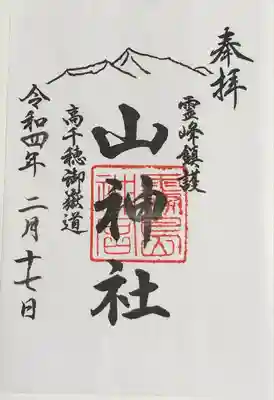 奉拝
霊峰鎮護
山神社
高千穂御嶽道
令和四年 二月十七日